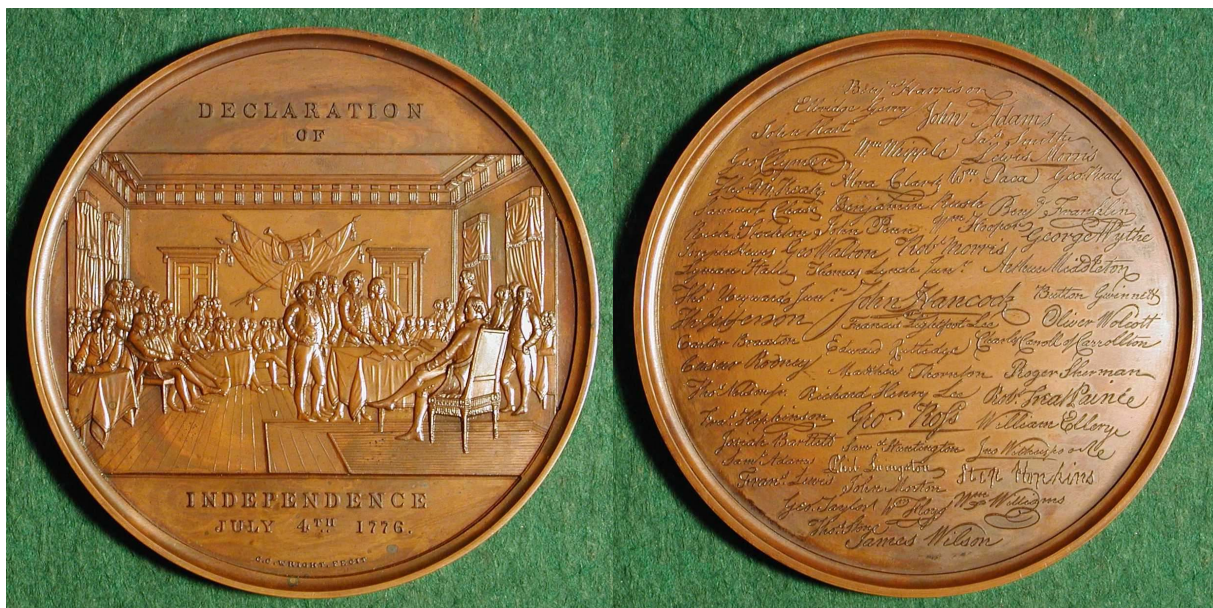 DECLARATION
OF
INDEPENDENCE
JULY 4TH 1776.
C.C. WRIGHT. FECIT
Benj Harrison
Elbridge Gerry John Adams
John Hart Jas Smith
Wm Whipple Lewis Morris
Geo Clymer
Abra Clark Wm Paca Geo Read
Samuel Chase Benjamin Rush Benj Franklin
John Penn Wm Hooper George Wythe
Geo Walton Robt Morris
Lyman Hall Thomas Lynch Junr. Arthur Middleton
Thos Heyward Junr. John Hancock Button Gwinnett
Th Jefferson Francis Lightfoot Lee Oliver Wolcott
Carter Braxton Edward Rutledge Charles Carroll of Carrollton
Caesar Rodney Matthew Thornton Roger Sherman
Richard Henry Lee Robt Treat Paine
Fras Hopkinson Geo. Ross William Ellery
Josiah Bartlett Saml Huntington Jno Witherspoon
Saml Adams Phil Livingston Step Hopkins
Frans Lewis John Morton
Geo. Taylor Wm Floyd Wm Williams
James Wilson